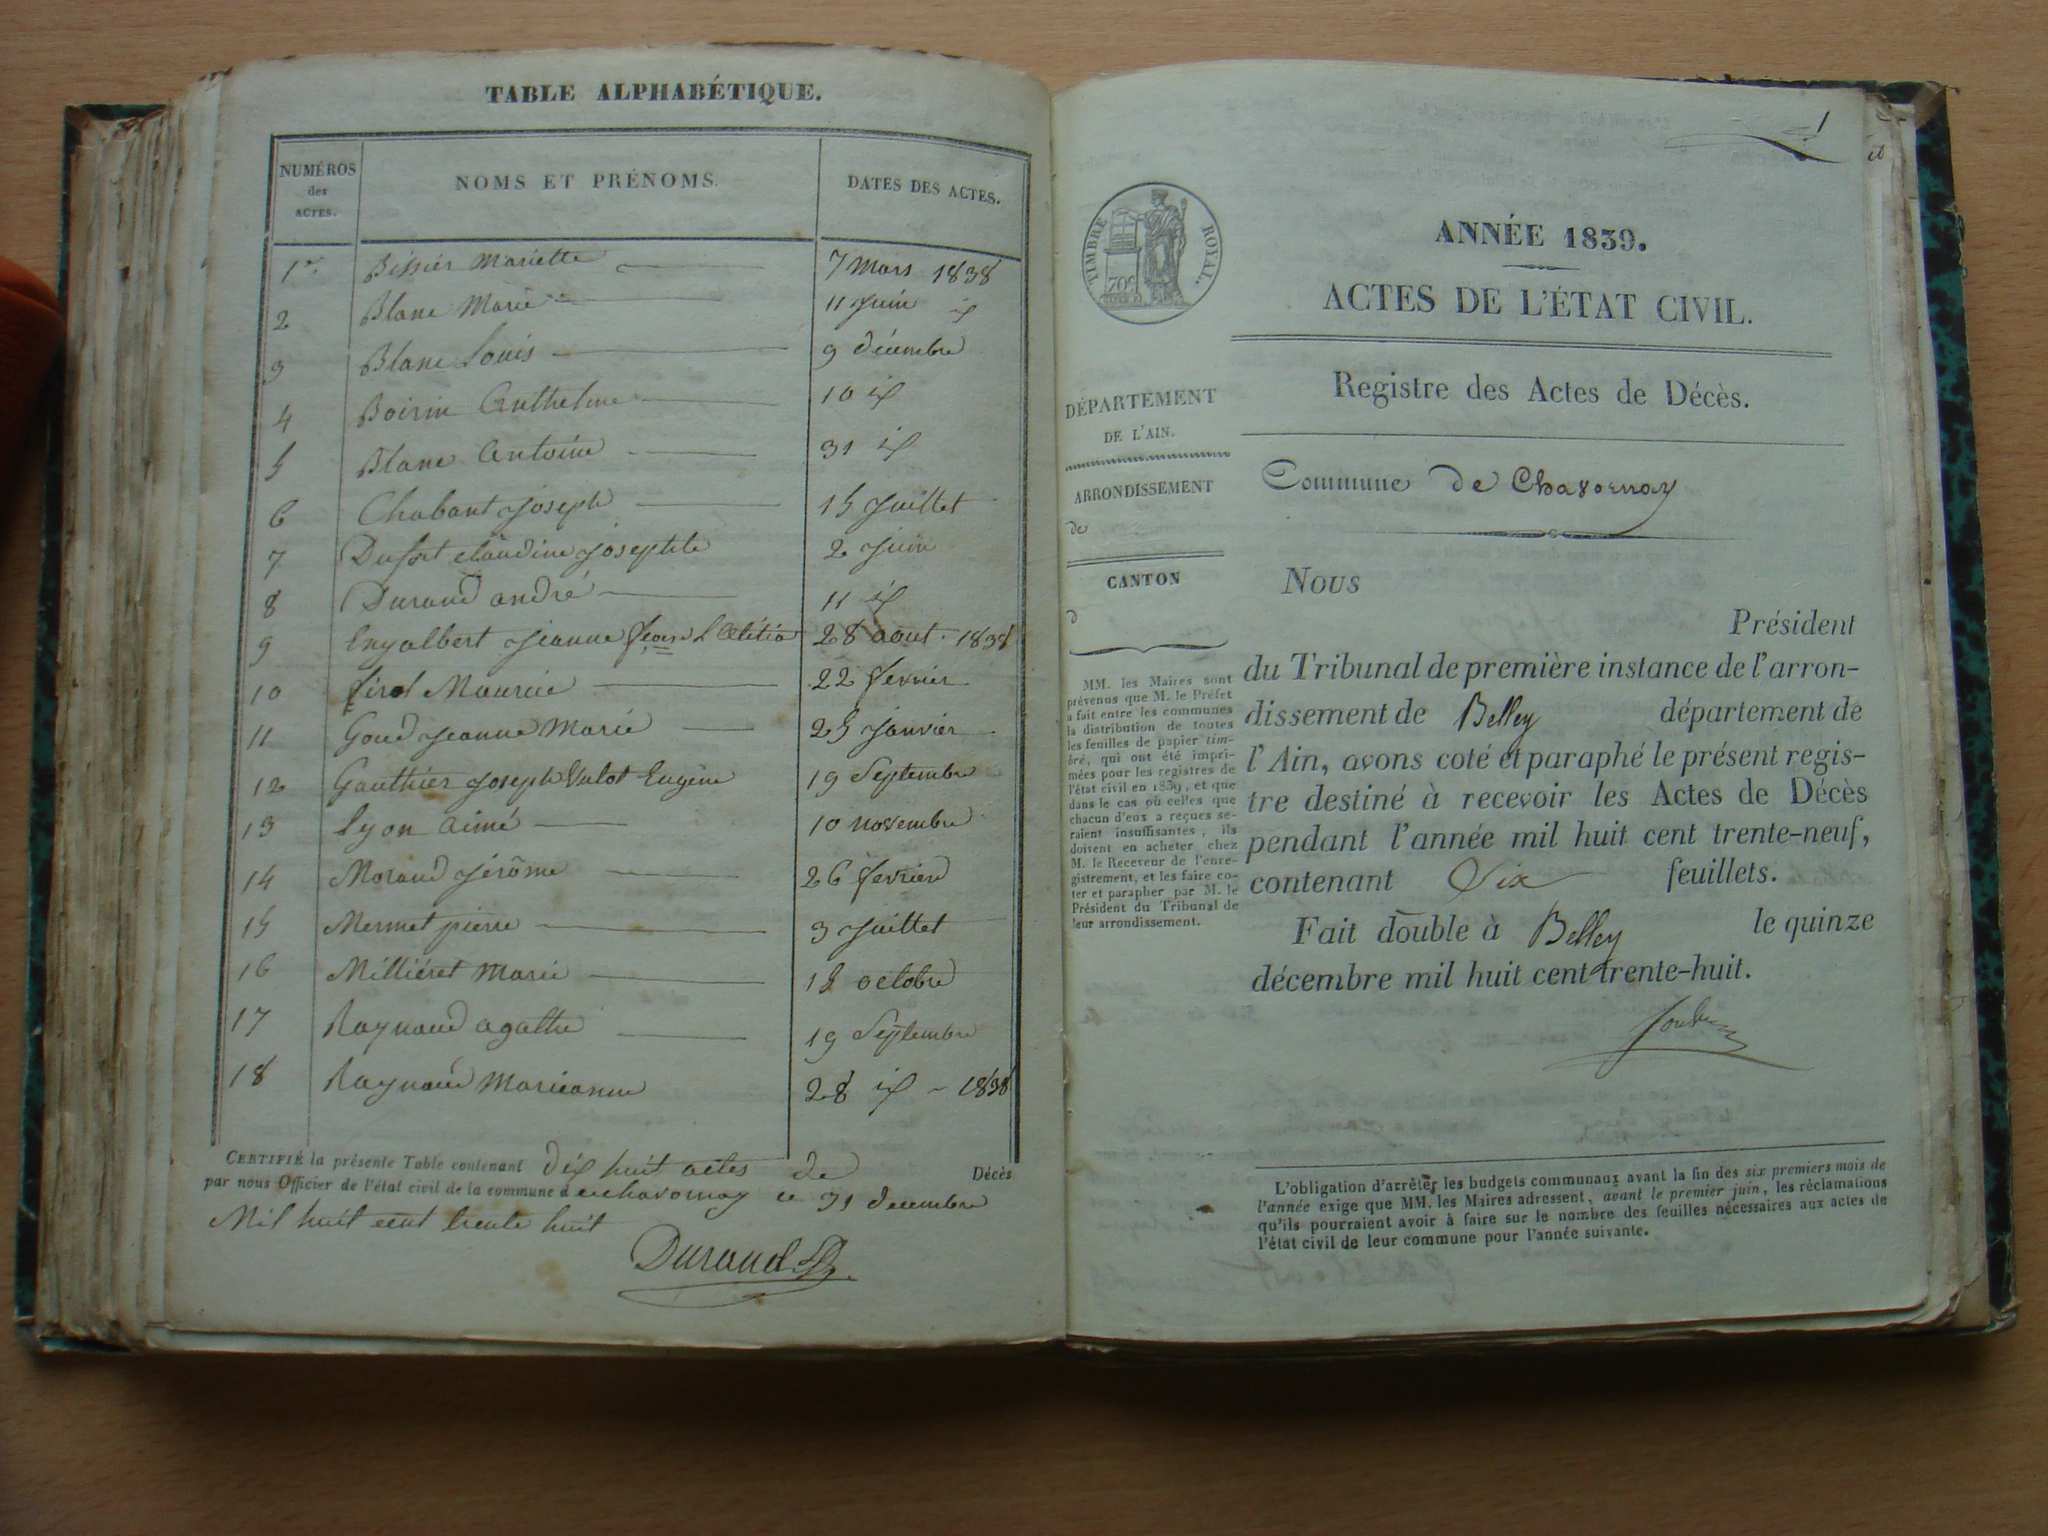 TABLE ALPHABÉTIQUE.
NUMÉROS des ACTES. NOMS ET PRÉNOMS. DATES DES ACTES.
1er Mariette 7 Mars 1838
2 Blanc Marie 11 Juin id
3 Blanc Louis 9 décembre
4 Boirin Anthelme 10 id
5 Blanc Antoine 31 id
6 Chabout Joseph 15 Juillet
7 claudine Josephte 2 Juin
8 Durand andré 11 id
9 Engalbert Jeanne 28 aout 1838
10 Maurice 22 fevrier
11 Goud Jeanne Marie 25 Janvier
12 Gauthier Joseph Eugène 19 Septembre
13 Lyon aimé 10 novembre
14 Morand Jérôme 26 fevrier
15 Mermet pierre 3 Juillet
16 Milliéret Marie 18 octobre
17 Raynaud agathe 19 Septembre
18 Raynaud Marieanne 28 id 1838
CERTIFIÉ la présente Table contenant dix huit actes de Décès
par nous Officier de l'état civil de la commune de chavornay ce 31 decembre
Mil huit cent trente huit
Durand
1
TIMBRE ROYAL.
70c
ANNÉE 1839.
ACTES DE L'ÉTAT CIVIL.
Registre des Actes de Décès.
DÉPARTEMENT
DE L'AIN.
ARRONDISSEMENT
de
CANTON
d
MM. les Maires sont
prévenus que M. le Préfet
a fait entre les communes
la distribution de toutes
les feuilles de papier tim-
bré, qui ont été impri-
mées pour les registres de
l'état civil en 1839, et que
dans le cas où celles que
chacun d'eux a reçues se-
raient insuffisantes, ils
doivent en acheter chez
M. le Receveur de l'enre-
gistrement, et les faire co-
ter et parapher par M. le
Président du Tribunal de
leur arrondissement.
Commune de Chavornay
Nous
Président
du Tribunal de première instance de l'arron-
dissement de Belley département de
l'Ain, avons coté et paraphé le présent regis-
tre destiné à recevoir les Actes de Décès
pendant l'année mil huit cent trente-neuf,
contenant Six feuillets.
Fait double à Belley le quinze
décembre mil huit cent trente-huit.
L'obligation d'arrêter les budgets communaux avant la fin des six premiers mois de
l'année exige que MM. les Maires adressent, avant le premier juin, les réclamations
qu'ils pourraient avoir à faire sur le nombre des feuilles nécessaires aux actes de
l'état civil de leur commune pour l'année suivante.